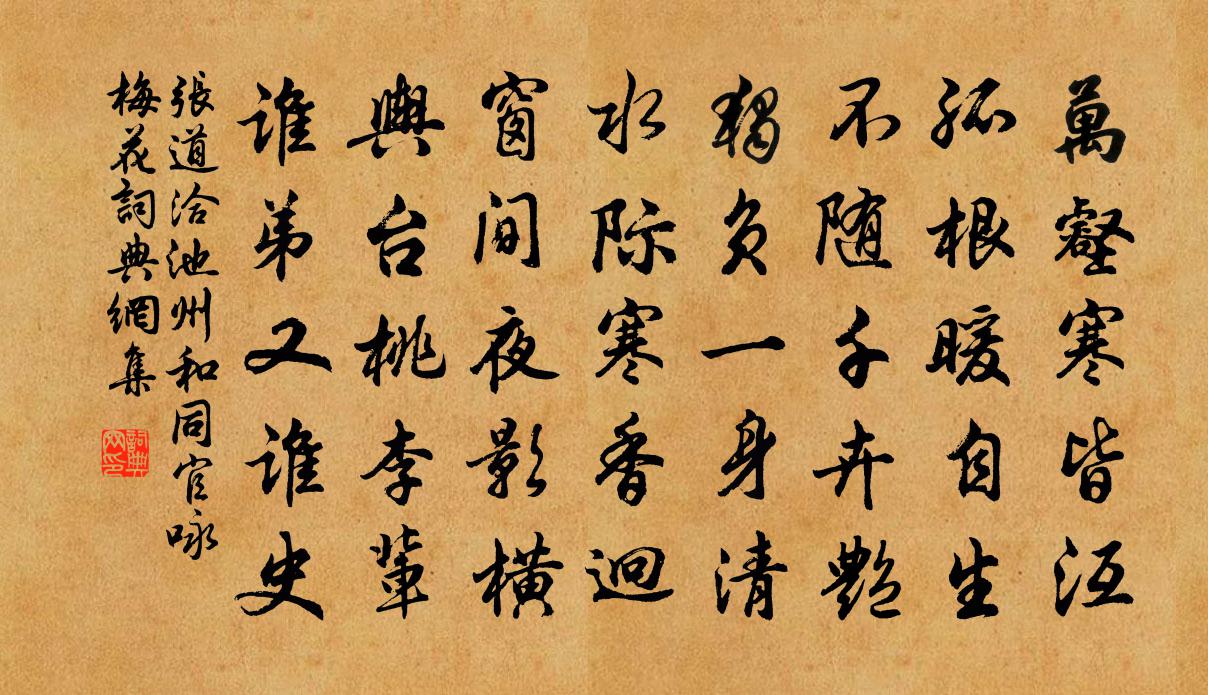 萬壑寒皆沍
孤根暖自生
不随千卉艷
獨負一身清
水际寒香迥
窗間夜影橫
輿台桃李輩
誰弟又誰史
張道洽池州和同官咏
梅花詞典網集
詞典網印